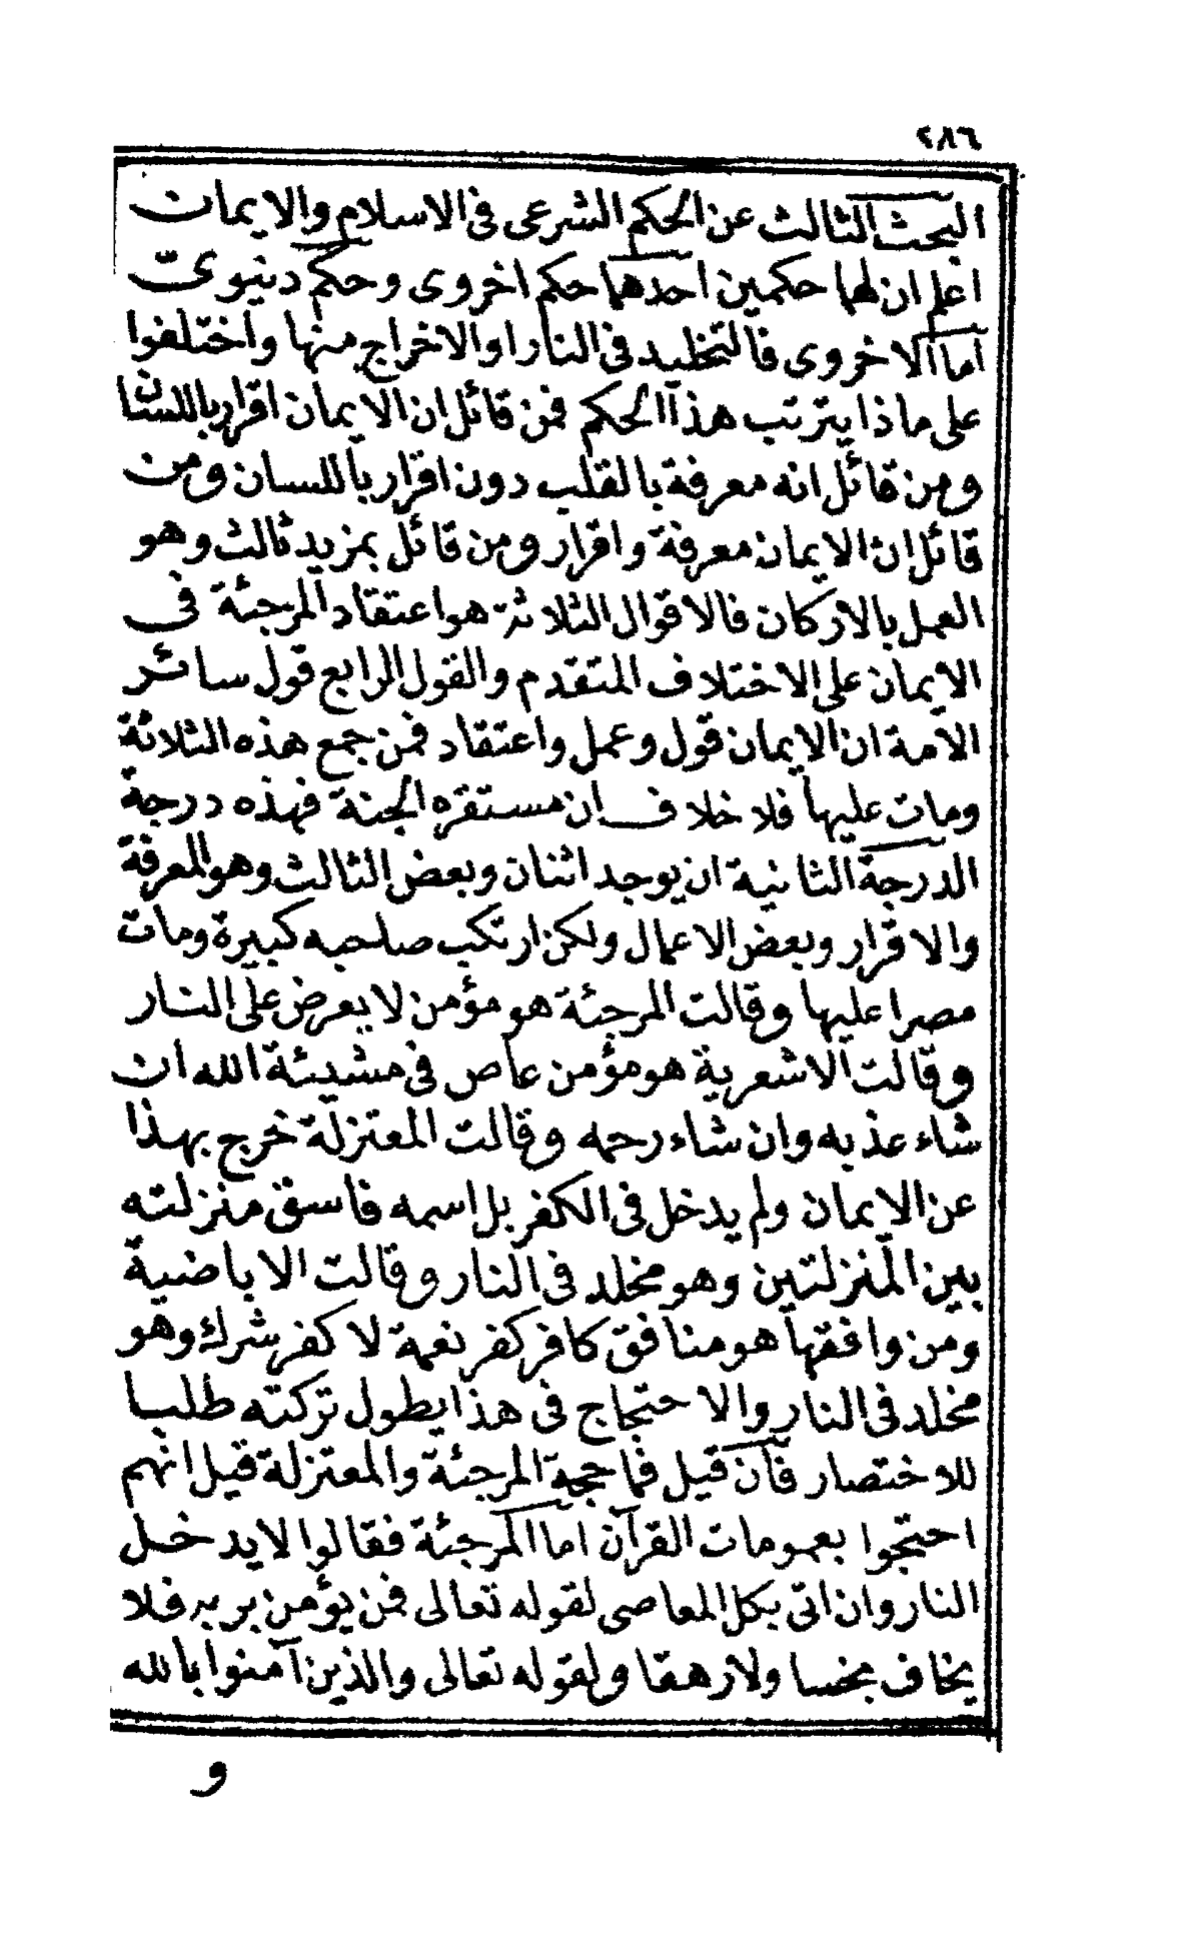 ٢٨٦
البحث الثالث عن الحكم الشرعى فى الاسلام والايمان
اعلم ان لهما حكمين احدهما حكم اخروى وحكم دنيوىّ
اما الاخروى فالتخليد فى النار او الاخراج منها واختلفوا
على ماذا يترتب هذا الحكم فمن قائل ان الايمان اقرار باللسان
ومن قائل انه معرفة بالقلب دون اقرار باللسان ومن
قائل ان الايمان معرفة واقرار ومن قائل بمزيد ثالث وهو
العمل بالاركان فالاقوال الثلاثة هو اعتقاد المرجئة فى
الايمان على الاختلاف المتقدم والقول الرابع قول سائر
الامة ان الايمان قول وعمل واعتقاد فمن جمع هذه الثلاثة
ومات عليها فلا خلاف ان مستقره الجنة فهذه درجة
الدرجة الثانية ان يوجد اثنان وبعض الثالث وهو المعرفة
والاقرار وبعض الاعمال ولكن ارتكب صاحبه كبيرة ومات
مصرا عليها وقالت المرجئة هو مؤمن لا يعرض على النار
وقالت الاشعرية هو مؤمن عاص فى مشيئة الله ان
شاء عذبه وان شاء رحمه وقالت المعتزلة خرج بهذا
عن الايمان ولم يدخل فى الكفر بل اسمه فاسق منزلته
بين المنزلتين وهو مخلد فى النار وقالت الاباضية
ومن وافقها هو منافق كافر كفر نعمة لا كفر شرك وهو
مخلد فى النار والاحتجاج فى هذا يطول تركته طلبا
للاختصار فان قيل فما حجة المرجئة والمعتزلة قيل انهم
احتجوا بعمومات القرآن اما المرجئة فقالوا لا يدخل
النار وان اتى بكل المعاصى لقوله تعالى فمن يؤمن بربه فلا
يخاف بخسا ولا رهقا ولقوله تعالى والذين آمنوا بالله
و